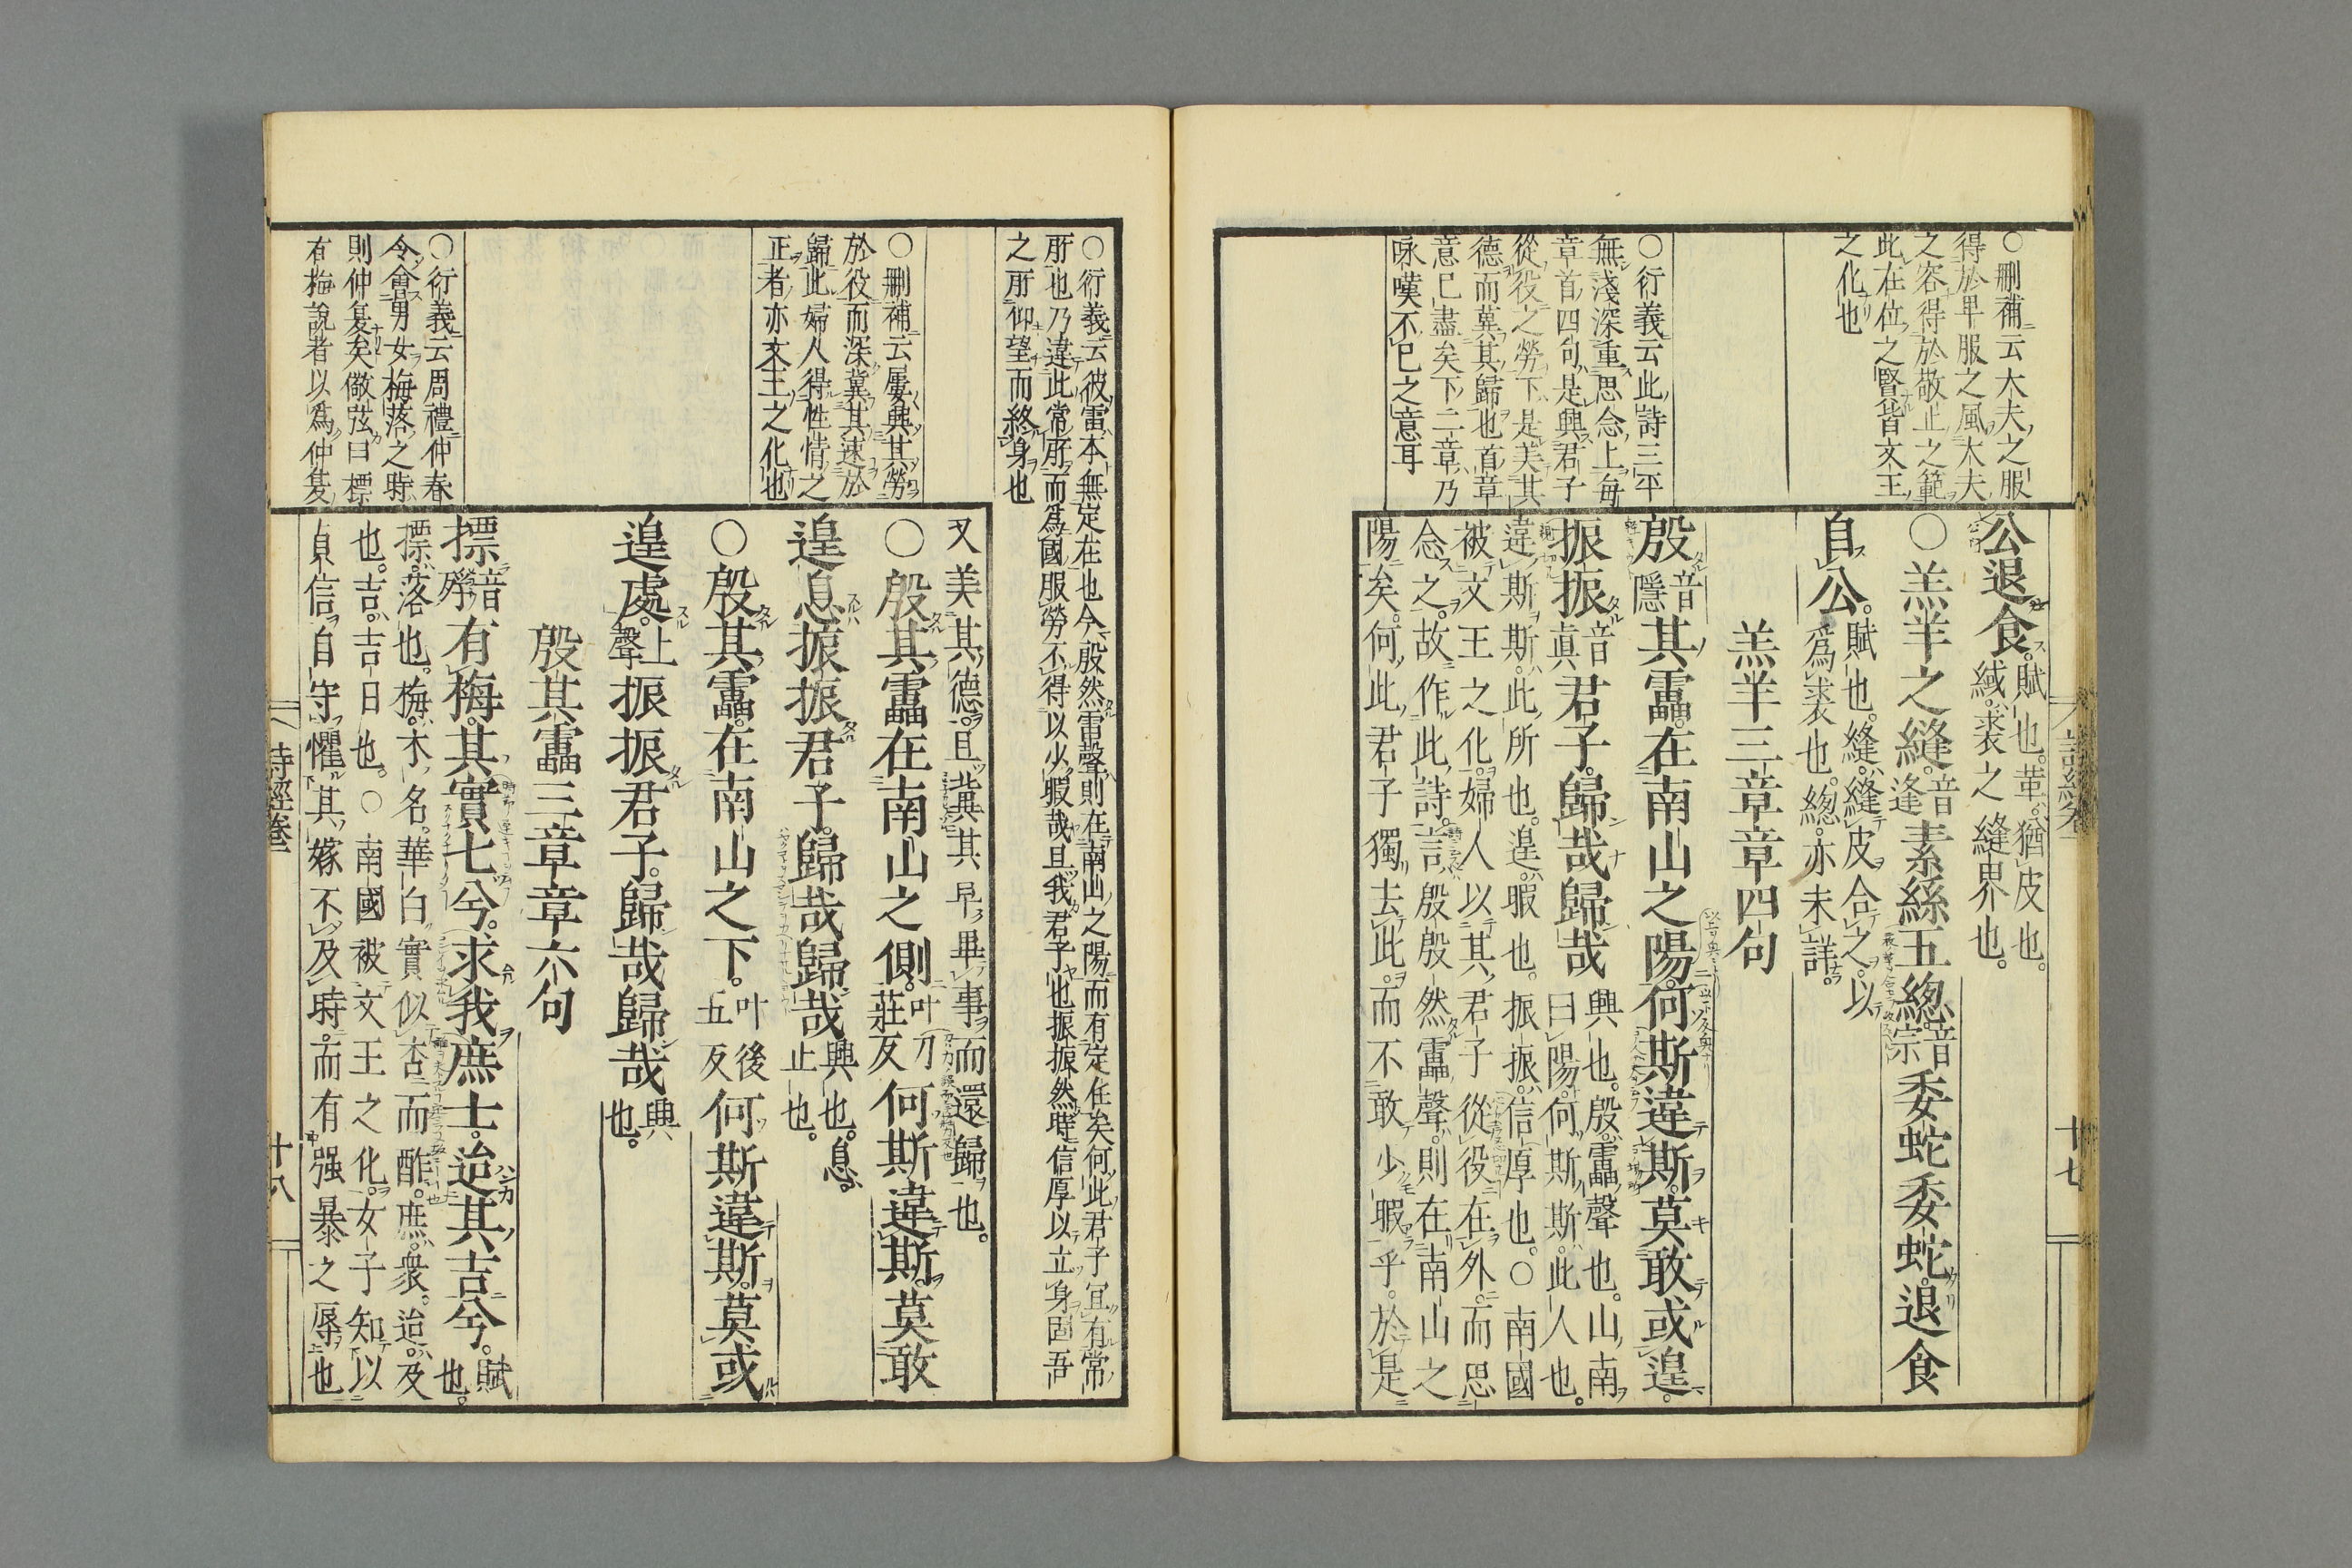 ○刪補云大夫之服
得於卑服之風大夫
之容得於敬止之範
此在位之賢皆文王
之化也
○衍義云此詩三平
無淺深重思念上每
章首四句是興君子
從役之勞下是美其
德而冀其歸也首章
意已盡矣下二章乃
咏嘆不已之意耳
公退食。賦也。革。猶皮也。
緎。裘之縫界也。
○羔羊之縫。音逢素絲五緫。音宗委蛇委蛇。退食
自公。賦也。縫。縫皮合之。以
爲裘也。緫。亦未詳。
羔羊三章章四句
殷音隱其靁。在南山之陽。何斯違斯。莫敢或遑。
振振音眞君子。歸哉歸哉興也。殷。靁聲也。山南
曰陽。何斯。斯。此人也。
違斯斯。此所也。遑。暇也。振振。信厚也。○南國
被文王之化。婦人以其君子從役在外。而思
念之。故作此詩。言殷殷然靁聲。則在南山之
陽矣。何此君子獨去此。而不敢少暇乎。於是
詩經卷一
十七
○衍義云彼雷本無定在也今殷然雷聲則在南山之陽而有定在矣何此君子宜有常
所也乃違此常所而爲國服勞不得以少暇哉且我君子也振振然時信厚以立身固吾
之所仰望而終身也
○刪補云屢興其勞
於役而深冀其速於
歸此婦人得性情之
正者亦文王之化也
○衍義云周禮仲春
令會男女梅落之時
則仲夏矣儆弦曰摽
有梅說者以爲仲夏
又美其德。且冀其早畢事而還歸也。
○殷其靁。在南山之側。叶莊力反何斯違斯。莫敢
遑息振振君子。歸哉歸哉興也。息。
止也。
○殷其靁。在南山之下。叶後五反何斯違斯。莫或
遑處。上聲振振君子。歸哉歸哉興
也。
殷其靁三章章六句
摽音殍有梅。其實七兮。求我庶士。迨其吉兮。賦
也。
摽。落也。梅。木名。華白實似杏而酢。庶。衆。迨。及
也。吉。吉日也。○南國被文王之化。女子知以
貞信自守。懼其嫁不及時。而有强暴之辱也
詩經卷一
十八